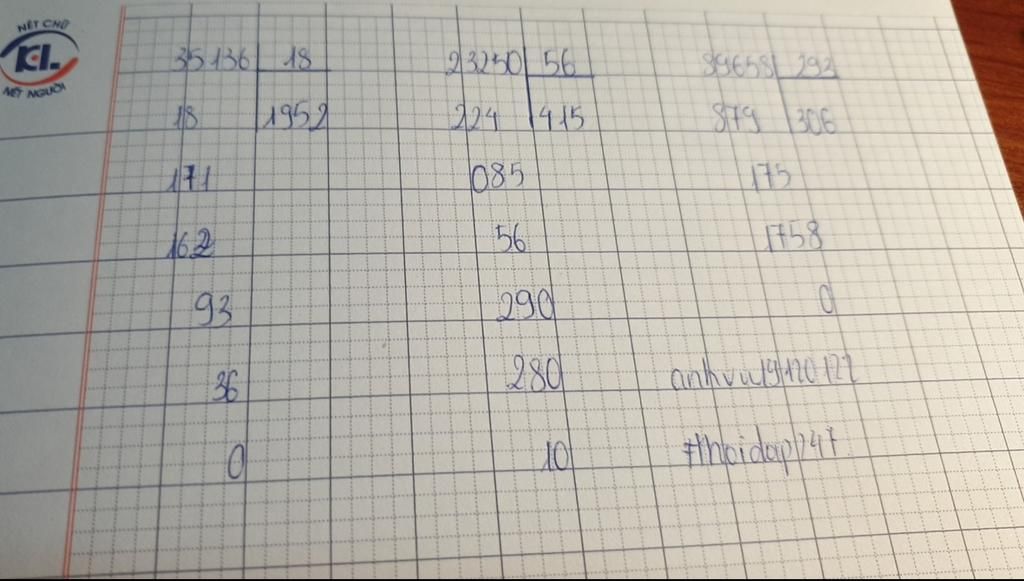 NÉT CHỮ
K-L
NẾT NGƯỜI
35136 18
18 1952
171
162
93
36
0
23250 56
224 415
085
56
290
280
10
89658 293
879 306
175
1758
0
anhvu19120122
#hoidap247